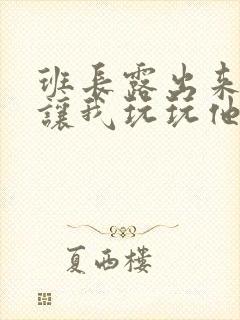 班長露出来
讓我玩玩他
夏西樓